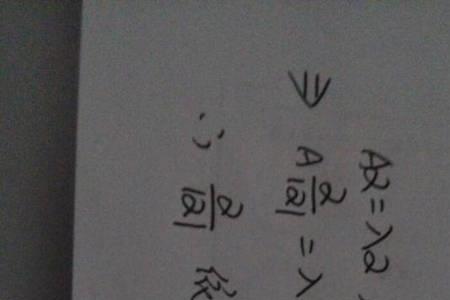 Aα = λα
⇒ A α/|α| = λ
∴ α/|α|